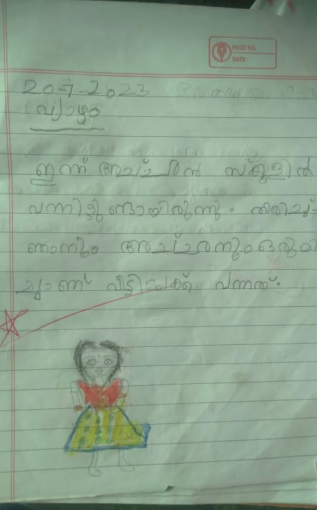 PAGE NO.
DATE:
20-7-2023
വ്യാഴം
ഇന്ന് അച്ഛൻ സ്കൂളിൽ
വന്നിട്ടുണ്ടായിരുന്നു. തിരിച്ച്
ഞാനും അച്ഛനും ഒരുമി
ച്ചാണ് വീട്ടിലേക്ക് വന്നത്.